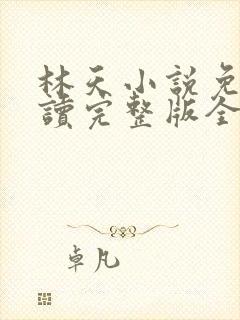 林天小說免
讀完整版全
卓凡